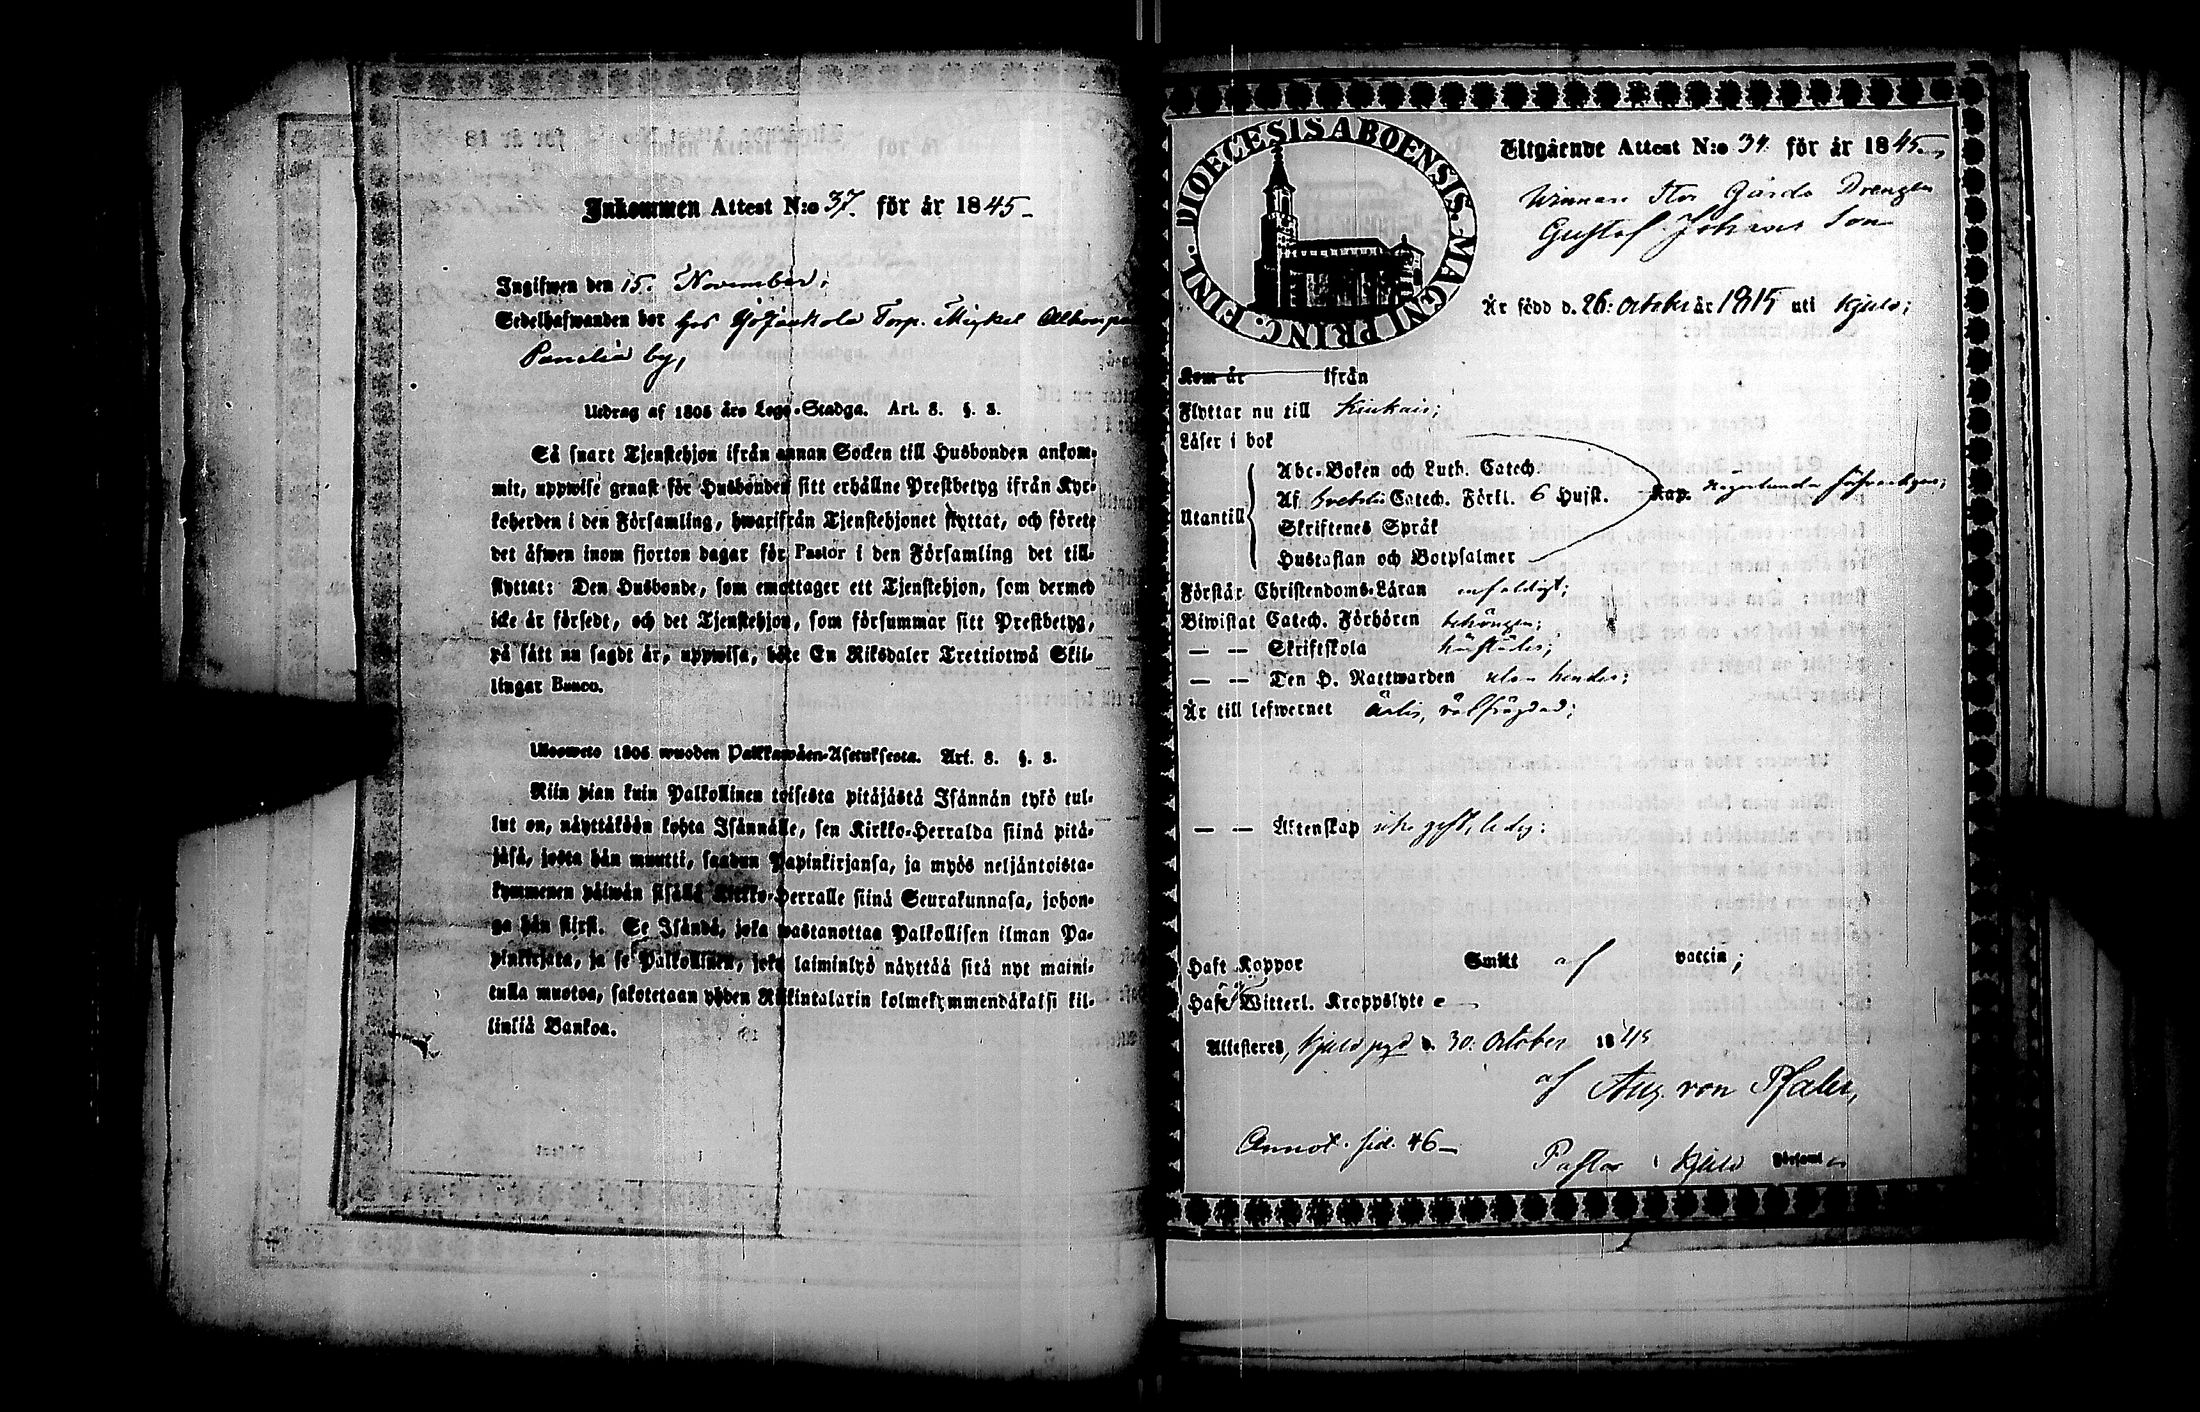 Inkommen Attest N:o 37. för år 1845
Ingifwen den 15. November;
Sedelhafwanden bor hos Torp. Mickel
Panelia by,
Utdrag af 1805 års Lego-Stadga. Art. 8. §. 3.
Så snart Tjenstehjon ifrån annan Socken till Husbonden ankom-
mit, uppwise genast för Husbonden sitt erhållne Prestbetyg ifrån Kyr-
koherden i den Församling, hwarifrån Tjenstehjonet flyttat, och förete
det äfwen inom fjorton dagar för Pastor i den Församling det till-
flyttat: Den Husbonde, som emottager ett Tjenstehjon, som dermed
icke är försedt, och det Tjenstehjon, som försummar sitt Prestbetyg,
på sätt nu sagdt är, uppwisa, böte En Riksdaler Trettiotwå Skil-
lingar Banco.
Ulosweto 1805 wuoden Palkkawäen-Asetuksesta. Art. 8. §. 3.
Niin pian kuin Palkollinen toisesta pitäjästä Isännän tykö tul-
lut on, näyttäköön kohta Isännälle, sen Kirkko-Herralda siinä pitä-
jäsä, josta hän muutti, saadun Papinkirjansa, ja myös neljäntoista-
kymmenen päiwän sisällä Kirkko-Herralle siinä Seurakunnasa, johon-
ga hän siirsi. Se Isändä, joka wastanottaa Palkollisen ilman Pa-
pinkirjata, ja se Palkollinen, joka laiminlyö näyttää sitä nyt maini-
tulla muotoa, sakotetaan yhden Riikintalarin kolmekymmendäkaksi kil-
linkiä Bankoa.
FINL. DIOECESIS ABOENSIS. MAGNI PRINC.
Utgående Attest N:o 34 för år 1845
Winnare Stor Gårds Drengen
Gustaf Johans Son
Är född d. 26. October år 1815 uti Kjulo;
Kom år ifrån
Flyttar nu till Kiukais;
Läser i bok
Utantill
Abc-Boken och Luth. Catech.
Af Svebelii Catech. Förkl. 6 Hufst. Kap. någorlunda försvarligen;
Skriftenes Språk
Hustaflan och Botpsalmer
Förstår Christendoms-Läran enfaldigt;
Biwistat Catech. Förhören behörigen;
— — Skriftskola
— — Den H. Nattwarden utan hinder;
Är till lefwernet ärlig, välfrägdad;
— — Äktenskap icke gift, ledig;
Haft Koppor Smitt af vaccin;
Hafr Witterl. Kroppslyte —
Attesteres, Kjulo pgd d. 30. October 1845
af Aug. von Pfaler,
Annot. sid. 46
Pastor i Kjulo Församl